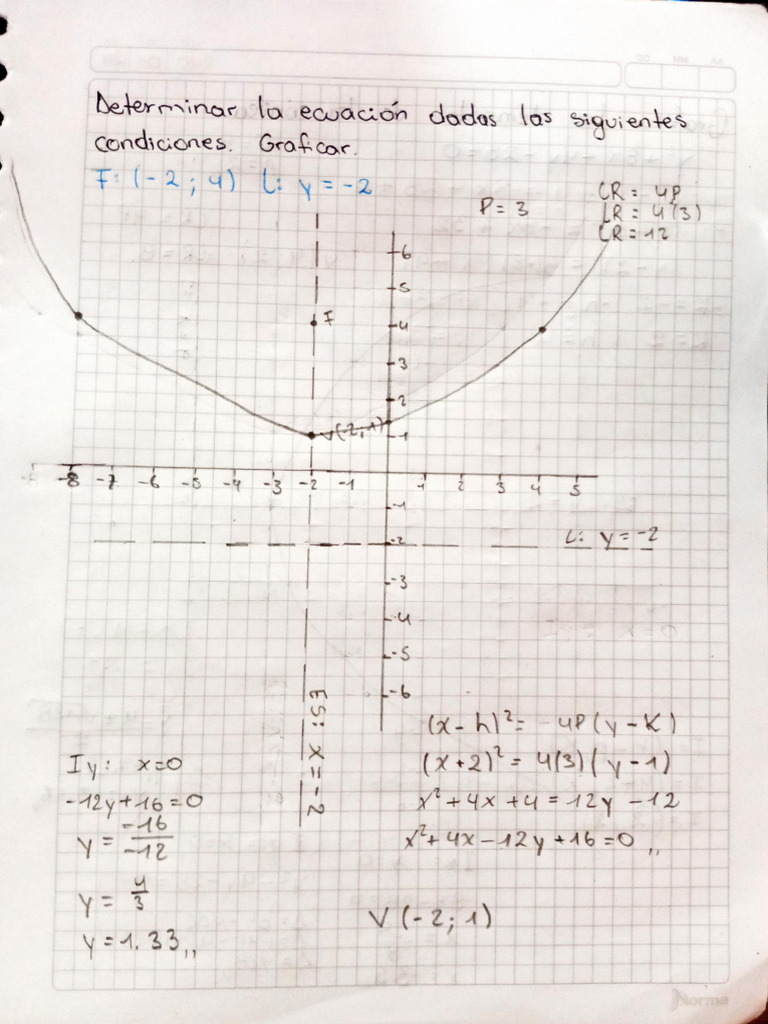 Determinar la ecuación dadas las siguientes
condiciones. Graficar.
F: (-2; 4) L: y = -2
P = 3
LR = 4P
LR = 4(3)
LR = 12
6
5
F
4
3
2
V(-2,1)
1
-8 -7 -6 -5 -4 -3 -2 -1 1 2 3 4 5
-1
L: y = -2
-2
-3
-4
-5
-6
ES: x = -2
(x-h)² = 4P(y-K)
(x+2)² = 4(3)(y-1)
x² + 4x + 4 = 12y - 12
x² + 4x - 12y + 16 = 0,,
V(-2; 1)
Iy: x=0
-12y+16=0
y = -16/-12
y = 4/3
y = 1.33,,
Norma